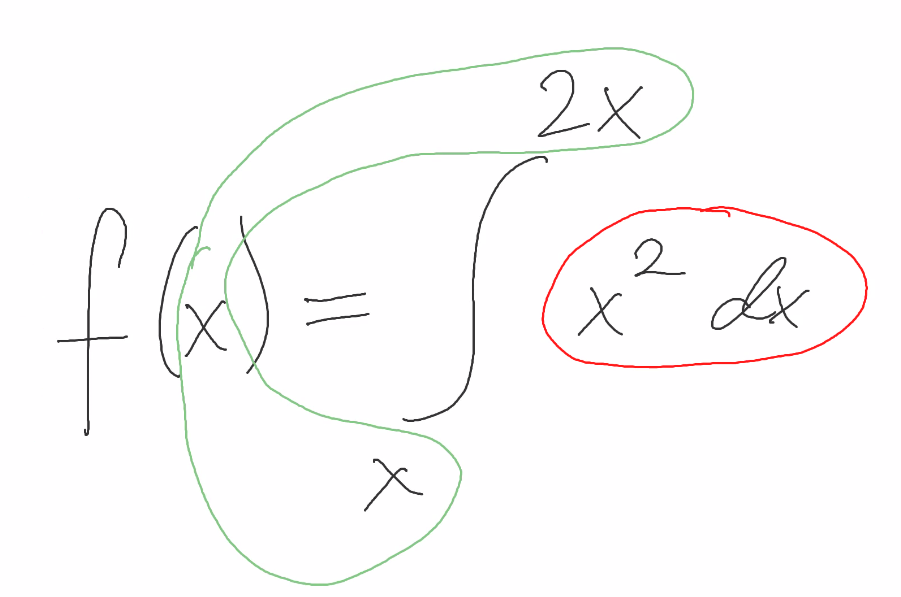 f(x) = ∫_{x}^{2x} x^2 dx